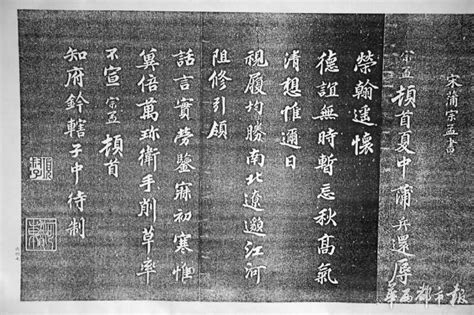 宋蒲宗孟書
宗孟頓首夏中蒲兵還辱
榮翰逮懷
德誼無時暫忘秋高氣
清想惟邇日
視履均勝南北遼邈江河
阻修引領
話言實勞鑒寐初寒惟
萬珎衛手削草率
不宣宗孟頓首
知府鈐轄子中待制
華西都市報